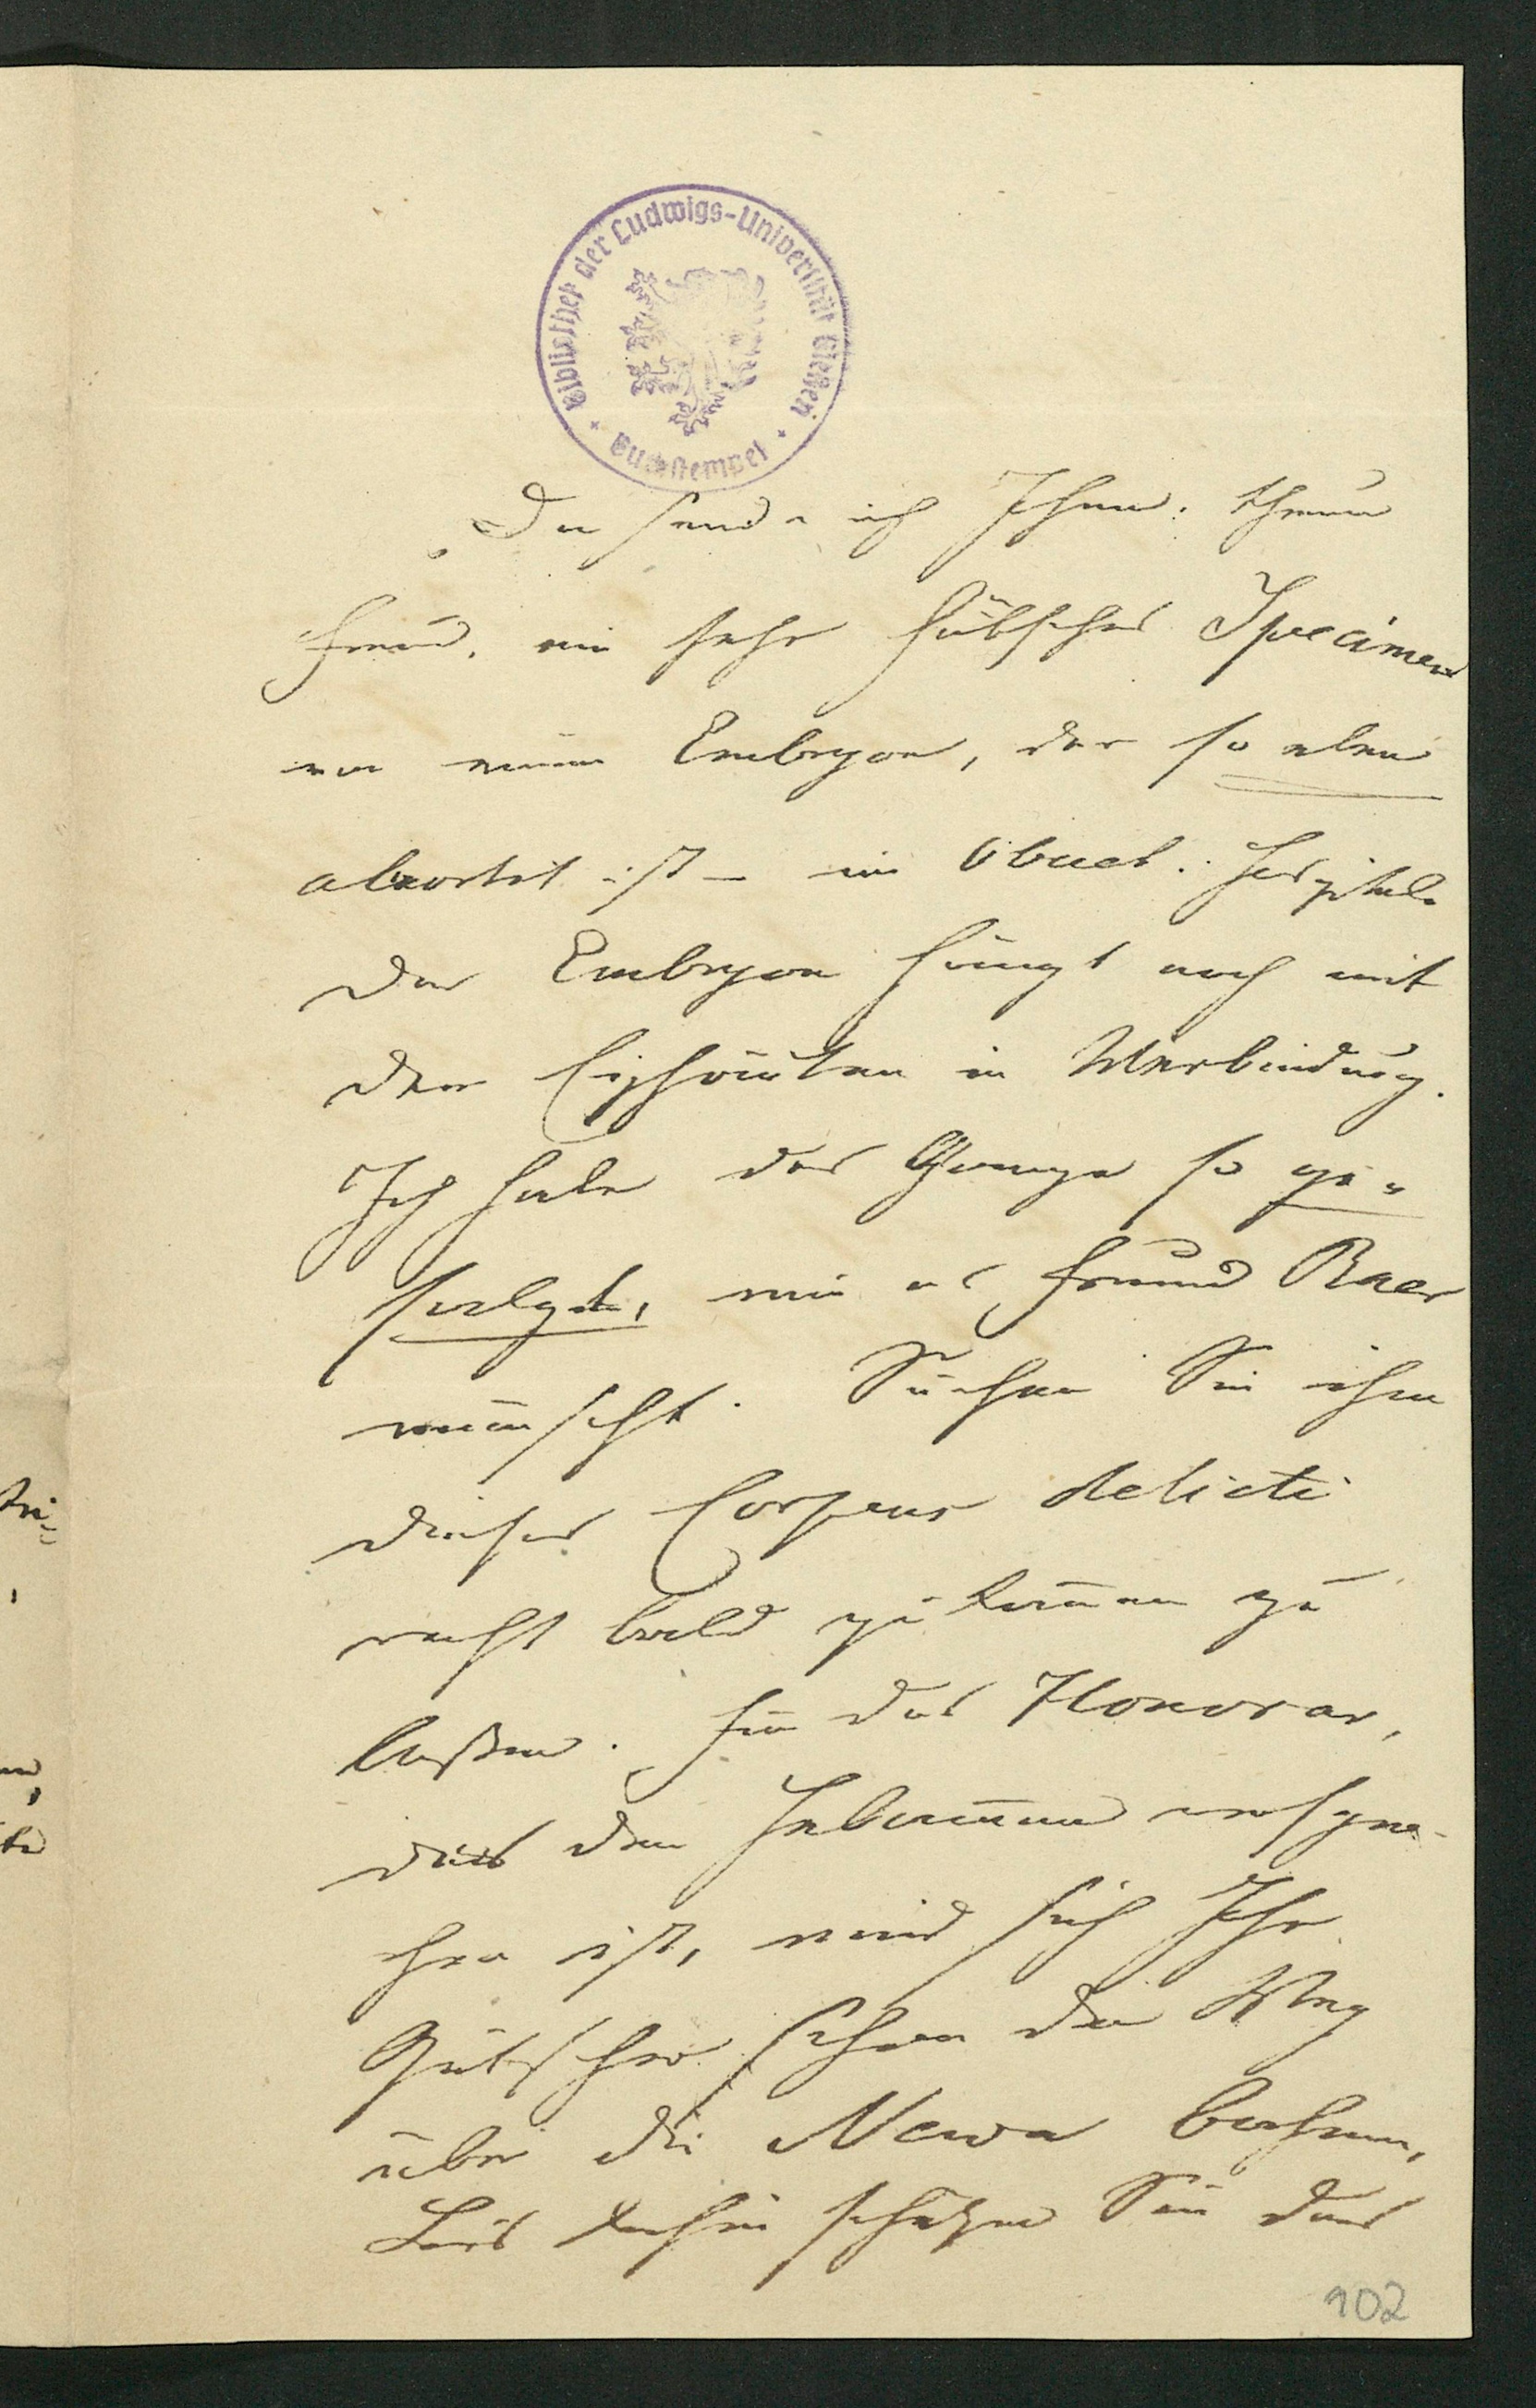 Bibliothek der Ludwigs-Universität Gießen
Buchstempel
Da sende ich Ihnen, theurer
Freund, ein sehr hübsches Specimen
von einem Embryon, der so eben
abortirt ist – im Obuch. Hospital.
Der Embryon hängt noch mit
den Eyhäuten in Verbindung.
Ich habe das Ganze so ge-
sorgt, wie es Freund Baer
wünscht. Suchen Sie ihm
dieses Corpus delicti
recht bald zukommen zu
laßen. Für das Honorar,
das den Hebammen verspro-
chen ist, wird sich Ihr
schon den Weg
über die Newa bahnen,
bis dahin schützen Sie das
102